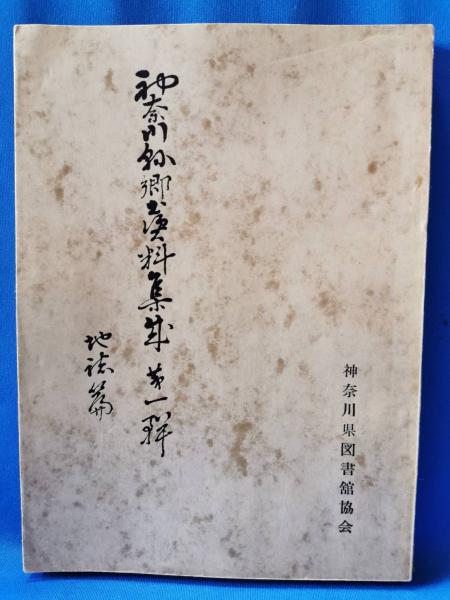 神奈川縣郷土資料集成 第一輯
地誌篇
神奈川県図書舘協会